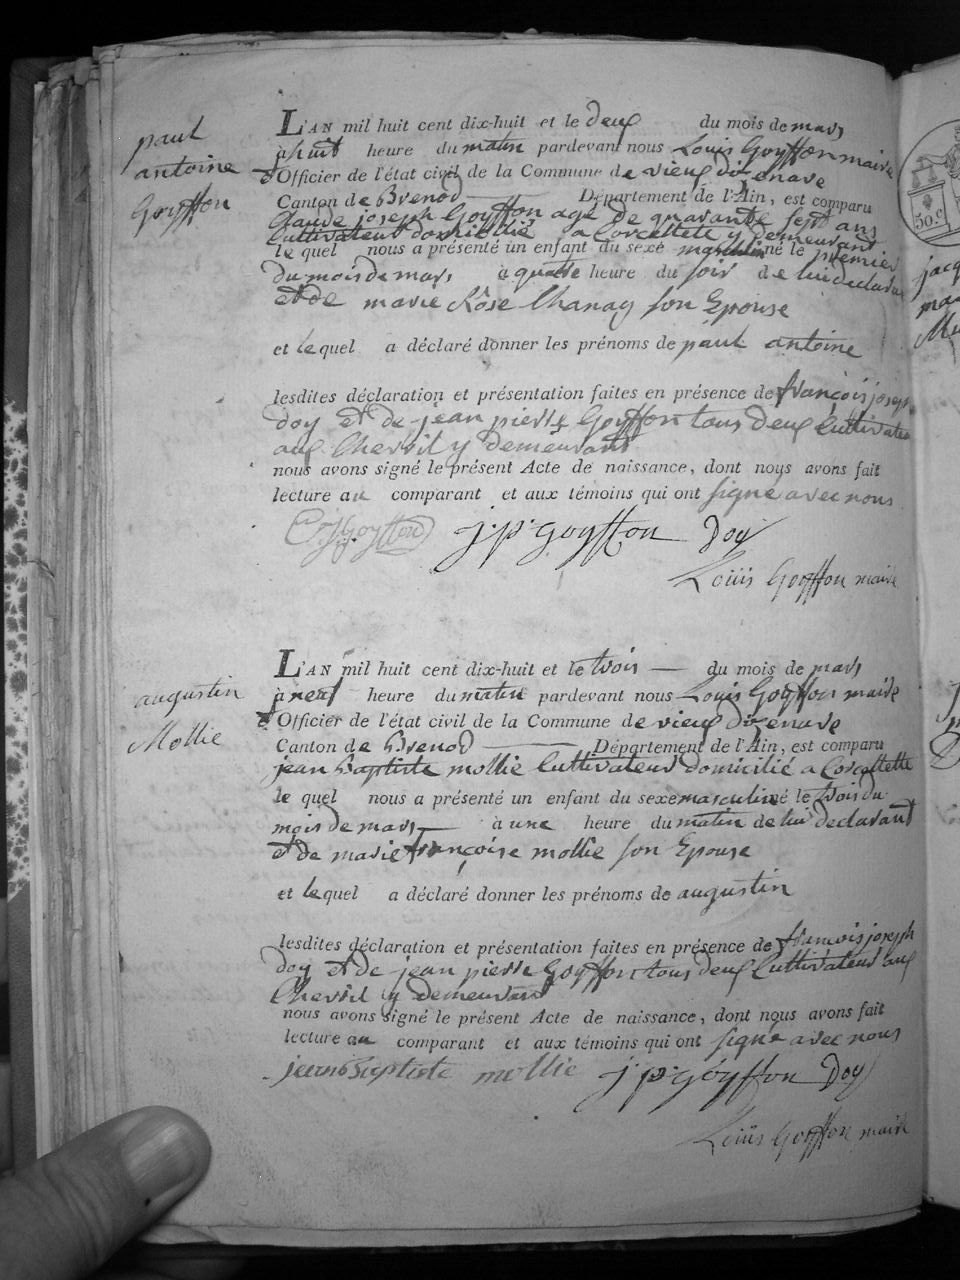 paul
antoine
Goyffon
L'AN mil huit cent dix-huit et le deux du mois de mars
a huit heure du matin pardevant nous Louis Goyffon maire
et Officier de l'état civil de la Commune de vieux dizenave
Canton de Brenod Département de l'Ain, est comparu
Claude joseph Goyffon agé de quarante sept ans
Cultivateur domicilié a Corcellete y demeurant
le quel nous a présenté un enfant du sexe masculin né le premier
du mois de mars à quatre heure du soir de lui declarant
et de marie Rôse Chanay son Epouse
et le quel a déclaré donner les prénoms de paul antoine
lesdites déclaration et présentation faites en présence de françois joseph
doy et de jean pierre Goyffon tous deux Cultivateur
aux Chevril y demeurant
nous avons signé le présent Acte de naissance, dont nous avons fait
lecture au comparant et aux témoins qui ont signé avec nous
C.j. Goyffon j. p. goyffon Doy
Loüis Goyffon maire
augustin
Mollie
L'AN mil huit cent dix-huit et le trois du mois de mars
a neuf heure du matin pardevant nous Louis Goyffon maire
et Officier de l'état civil de la Commune de vieux dizenave
Canton de Brenod Département de l'Ain, est comparu
jean Baptiste mollie Cultivateur domicilié a Corcellette
le quel nous a présenté un enfant du sexe masculin né le trois du
mois de mars à une heure du matin de lui declarant
et de marie françoise mollie son Epouse
et le quel a déclaré donner les prénoms de augustin
lesdites déclaration et présentation faites en présence de francois joseph
doy et de jean pierre Goyffon tous deux Cultivateur aux
Chevril y demeurant
nous avons signé le présent Acte de naissance, dont nous avons fait
lecture au comparant et aux témoins qui ont signé avec nous
jean Baptiste mollie j. p. goyffon Doy
Loüis Goyffon maire
50.c